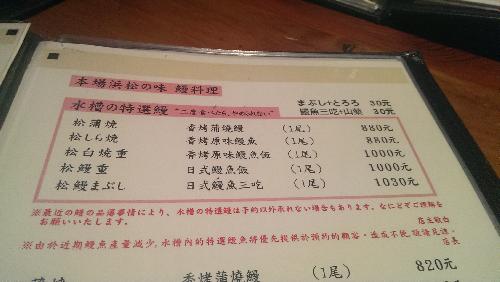 本場浜松の味 鰻料理
水槽の特選鰻 "二度食べたら、やめれない" まぶし+とろろ 30元
鰻魚三吃+山藥 30元
松蒲焼 香烤蒲燒鰻 (1尾) 880元
松しら焼 香烤原味鰻魚 (1尾) 880元
松白焼重 香烤原味鰻魚飯 (1尾) 1000元
松鰻重 日式鰻魚飯 (1尾) 1000元
松鰻まぶし 日式鰻魚三吃 (1尾) 1030元
※最近の鰻の品薄事情により、水槽の特選鰻は予約以外承れない場合もあります。なにとぞご理解を
お願いいたします。 店主敬白
※由於近期鰻魚產量減少,水槽內的特選鰻魚將優先提供於預約的顧客,造成不便,敬請見諒。
店長
香烤蒲燒鰻 (1尾) 820元